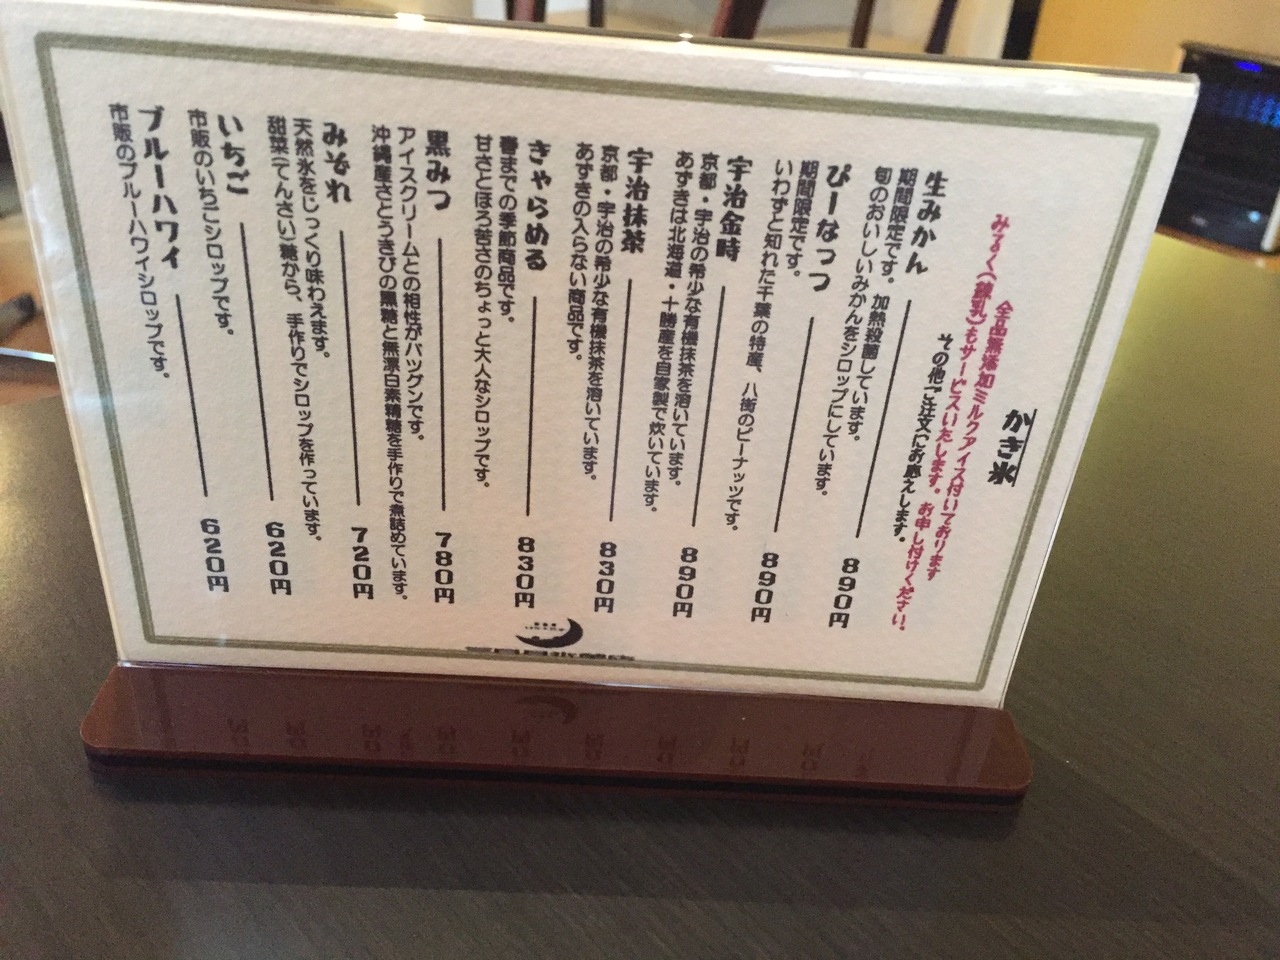 かき氷
全品無添加ミルクアイス付いております
みるく(練乳)もサービスいたします。お申し付けください。
その他ご注文にお応えします。
生みかん 890円
期間限定です。加熱殺菌しています。
旬のおいしいみかんをシロップにしています。
ぴーなっつ 890円
期間限定です。
いわずと知れた千葉の特産、八街のピーナッツです。
宇治金時 890円
京都・宇治の希少な有機抹茶を溶いています。
あずきは北海道・十勝産を自家製で炊いています。
宇治抹茶 830円
京都・宇治の希少な有機抹茶を溶いています。
あずきの入らない商品です。
きゃらめる 830円
春までの季節商品です。
甘さとほろ苦さのちょっと大人なシロップです。
黒みつ 780円
アイスクリームとの相性がバツグンです。
沖縄産さとうきびの黒糖と無漂白素精糖を手作りで煮詰めています。
みぞれ 720円
天然氷をじっくり味わえます。
甜菜(てんさい)糖から、手作りでシロップを作っています。
いちご 620円
市販のいちごシロップです。
ブルーハワイ 620円
市販のブルーハワイシロップです。